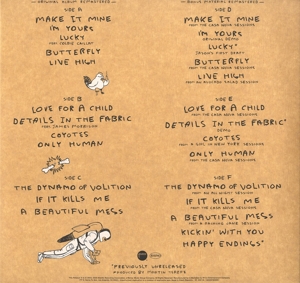 ORIGINAL ALBUM REMASTERED
SIDE A
MAKE IT MINE
I'M YOURS
LUCKY
FEAT. COLBIE CAILLAT
BUTTERFLY
LIVE HIGH
SIDE B
LOVE FOR A CHILD
DETAILS IN THE FABRIC
FEAT. JAMES MORRISON
COYOTES
ONLY HUMAN
SIDE C
THE DYNAMO OF VOLITION
IF IT KILLS ME
A BEAUTIFUL MESS
BONUS MATERIAL REMASTERED
SIDE D
MAKE IT MINE
FROM THE CASA NOVA SESSIONS
I'M YOURS
ORIGINAL DEMO
LUCKY*
JASON'S FIRST DRAFT
BUTTERFLY
FROM THE CASA NOVA SESSIONS
LIVE HIGH
SIDE E
LOVE FOR A CHILD
FROM THE CASA NOVA SESSIONS
DETAILS IN THE FABRIC*
DEMO
COYOTES
ONLY HUMAN
FROM THE CASA NOVA SESSIONS
SIDE F
THE DYNAMO OF VOLITION
IF IT KILLS ME
FROM THE CASA NOVA SESSIONS
A BEAUTIFUL MESS
KICKIN' WITH YOU
HAPPY ENDINGS*
*PREVIOUSLY UNRELEASED
PRODUCED BY MARTIN TEREFE